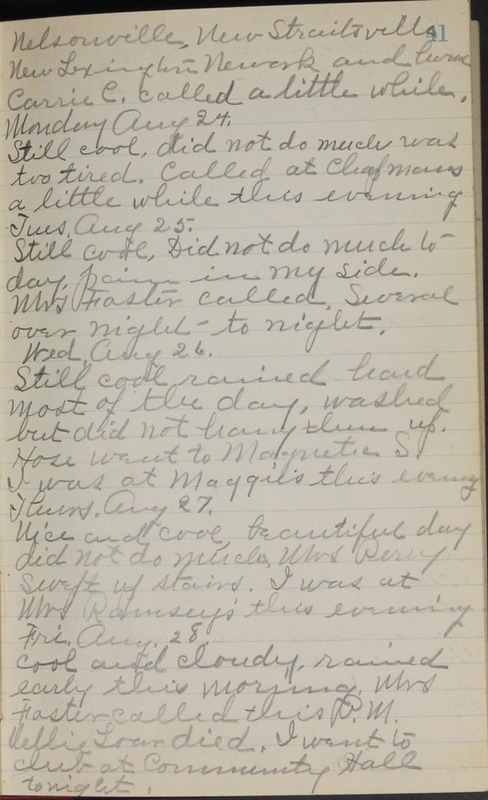 41
Nelsonville, New Straitsville
New Lexington Newark and home
Carrie C. called a little while.
Monday Aug 24.
Still cool, did not do much was
too tired. Called at Chapmans
a little while this evening
Tues, Aug 25.
Still cool, Did not do much to
day, pain in my side.
Mrs Faster called, Several
over night - to night.
Wed, Aug 26.
Still cool rained hard
most of the day, washed
but did not hang them up.
went to Magnetic S.
I was at Maggie's this evening
Thurs. Aug 27.
Nice and cool, beautiful day
did not do much, Mrs Perry
Swept up stairs. I was at
Mrs Ramsey's this evening
Fri. Aug. 28
cool and cloudy, rained
early this morning. Mrs
Faster called this P.M.
died. I went to
club at Community Hall
tonight.